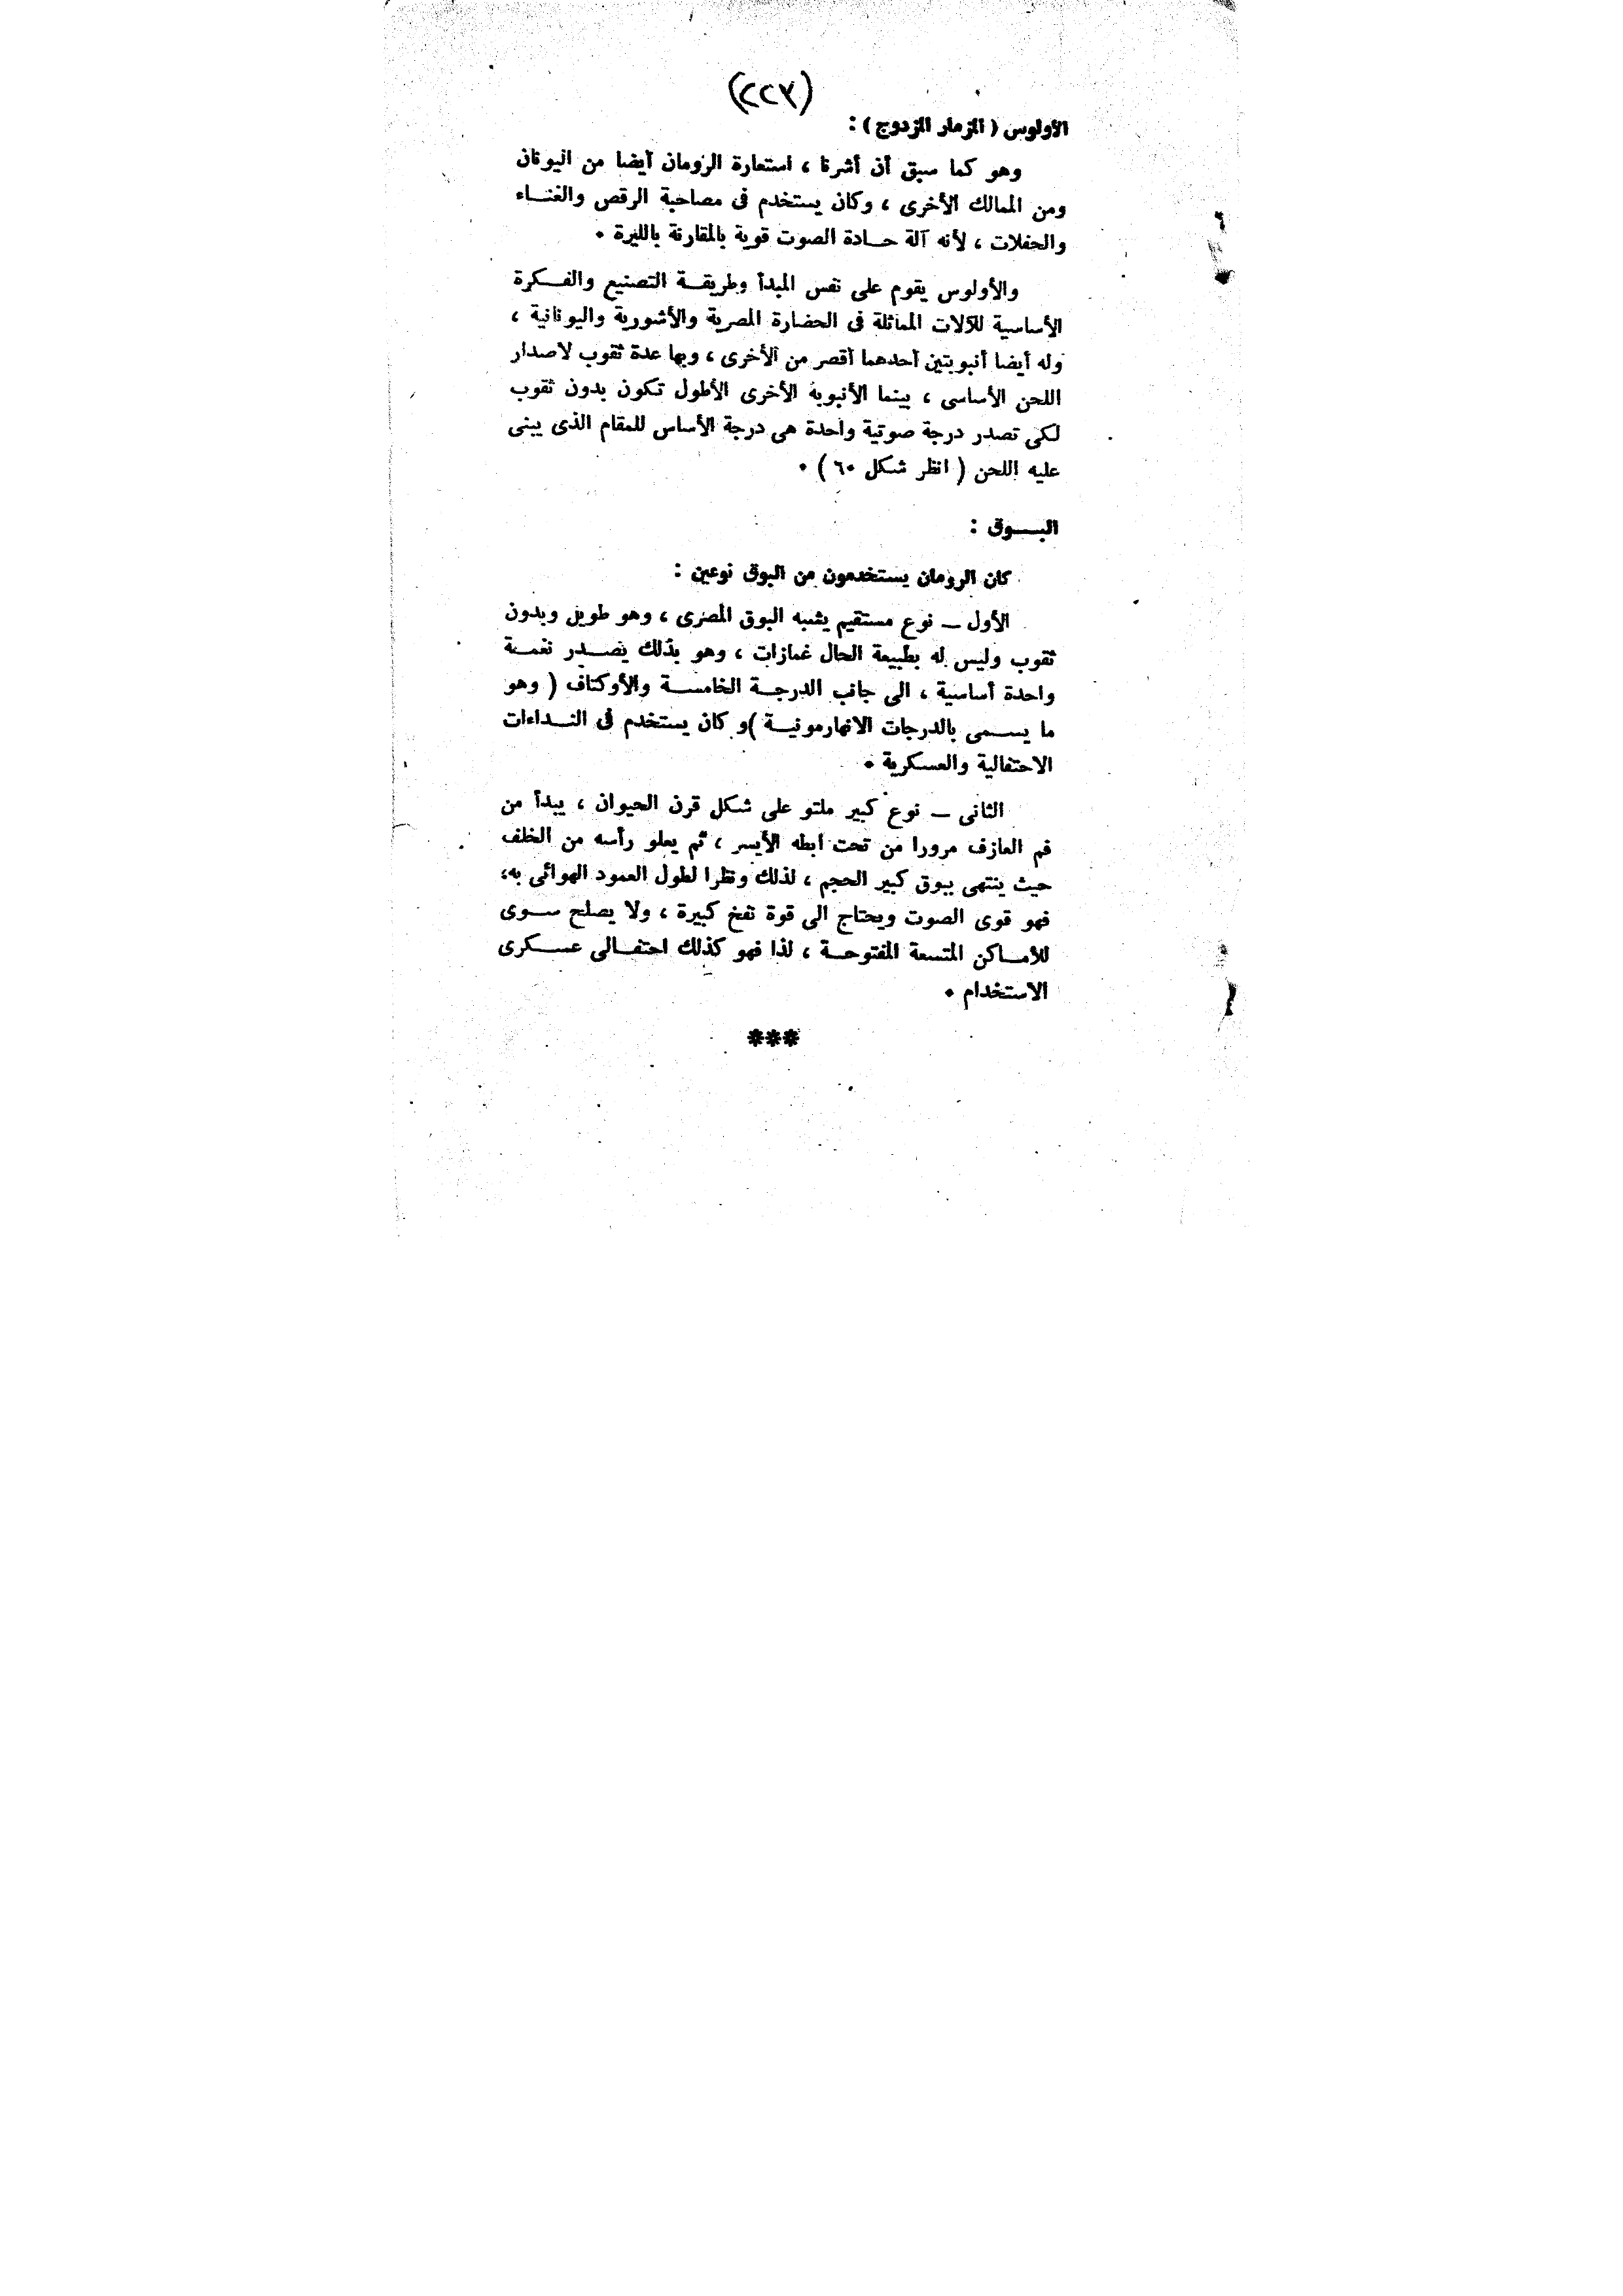 (٢٢٧)
الأولوس ( المزمار المزدوج ) :
وهو كما سبق أن أشرنا ، استعارة الرومان أيضا من اليونان
ومن الممالك الأخرى ، وكان يستخدم فى مصاحبة الرقص والغنـــاء
والحفلات ، لأنه آلة حـــادة الصوت قوية بالمقارنة بالليرة ٠
والأولوس يقوم على نفس المبدأ وطريقـــة التصنيع والفـــكرة
الأساسية للآلات المماثلة فى الحضارة المصرية والأشورية واليونانية ،
وله أيضا أنبوبتين أحدهما أقصر من الأخرى ، وبها عدة ثقوب لاصدار
اللحن الأساسى ، بينما الأنبوبة الأخرى الأطول تكون بدون ثقوب
لكى تصدر درجة صوتية واحدة هى درجة الأساس للمقام الذى يبنى
عليه اللحن ( انظر شكل ٦٠ ) ٠
البـــوق :
كان الرومان يستخدمون من البوق نوعين :
الأول ـ نوع مستقيم يشبه البوق المصرى ، وهو طويل وبدون
ثقوب وليس له بطبيعة الحال غمازات ، وهو بذلك يصـــدر نغمـــة
واحدة أساسية ، الى جانب الدرجـــة الخامســـة والأوكتاف ( وهو
ما يســـمى بالدرجات الانهارمونيـــة )و كان يستخدم فى النـــداءات
الاحتفالية والعسكرية ٠
الثانى ـ نوع كبير ملتو على شكل قرن الحيوان ، يبدأ من
فم العازف مرورا من تحت ابطه الأيسر ، ثم يعلو رأسه من الخلف
حيث ينتهى ببوق كبير الحجم ، لذلك ونظرا لطول العمود الهوائى به،
فهو قوى الصوت ويحتاج الى قوة نفخ كبيرة ، ولا يصلح ســـوى
للأمـــاكن المتسعة المفتوحـــة ، لذا فهو كذلك احتفـــالى عســـكرى
الاستخدام ٠
***